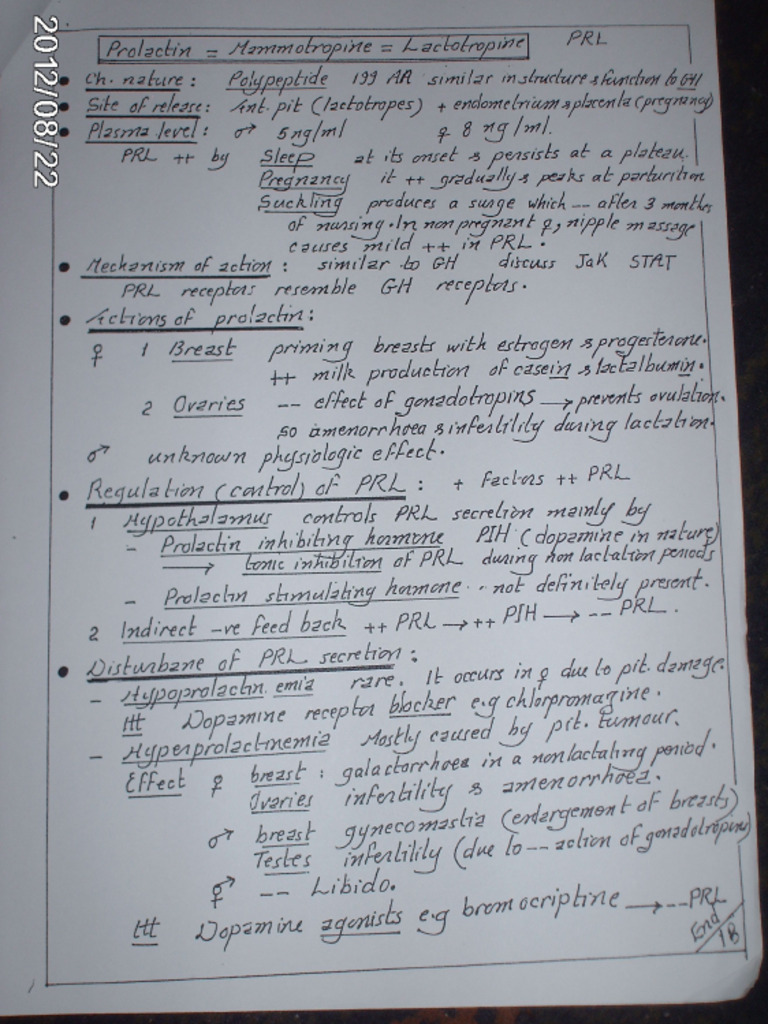 2012/08/22
Prolactin = Mammotropine = Lactotropine PRL
• Ch. nature : Polypeptide 199 AA similar in structure & function to GH
• Site of release : Ant. pit (lactotropes) + endometrium & placenta (pregnancy)
• Plasma level : ♂ 5 ng/ml ♀ 8 ng/ml.
PRL ++ by Sleep at its onset & persists at a plateau.
Pregnancy it ++ gradually & peaks at parturition
Suckling produces a surge which -- after 3 months
of nursing. In non pregnant ♀, nipple massage
causes mild ++ in PRL.
• Mechanism of action : similar to GH discuss JaK STAT
PRL receptors resemble GH receptors.
• Actions of prolactin :
♀ 1 Breast priming breasts with estrogen & progesterone.
++ milk production of casein & lactalbumin.
2 Ovaries -- effect of gonadotropins → prevents ovulation.
so amenorrhoea & infertility during lactation.
♂ unknown physiologic effect.
• Regulation (control) of PRL : + Factors ++ PRL
1 Hypothalamus controls PRL secretion mainly by
- Prolactin inhibiting hormone PIH (dopamine in nature)
→ tonic inhibition of PRL during non lactation periods
- Prolactin stimulating hormone .. not definitely present.
2 Indirect -ve feed back ++ PRL → ++ PIH → -- PRL.
• Disturbane of PRL secretion :
- Hypoprolactin.emia rare. It occurs in ♀ due to pit. damage.
ttt Dopamine receptor blocker e.g chlorpromazine.
- Hyperprolactinemia Mostly caused by pit. tumour.
Effect ♀ breast : galactorrhoea in a nonlactating period.
Ovaries infertility & amenorrhoea.
♂ breast gynecomastia (enlargement of breasts)
Testes infertility (due to -- action of gonadotropins)
⚥ -- Libido.
ttt Dopamine agonists e.g bromocriptine → -- PRL
End
1B